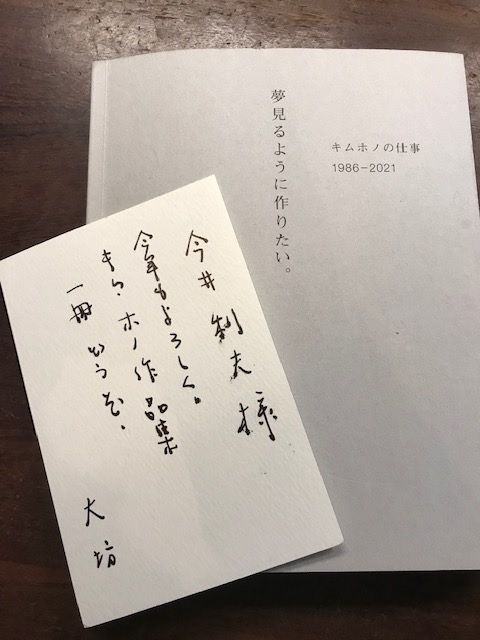 夢見るように作りたい。
キムホノの仕事
1986-2021
今井利夫様
今年もよろしく。
キム・ホノ作品集
一冊どうぞ、
大坊